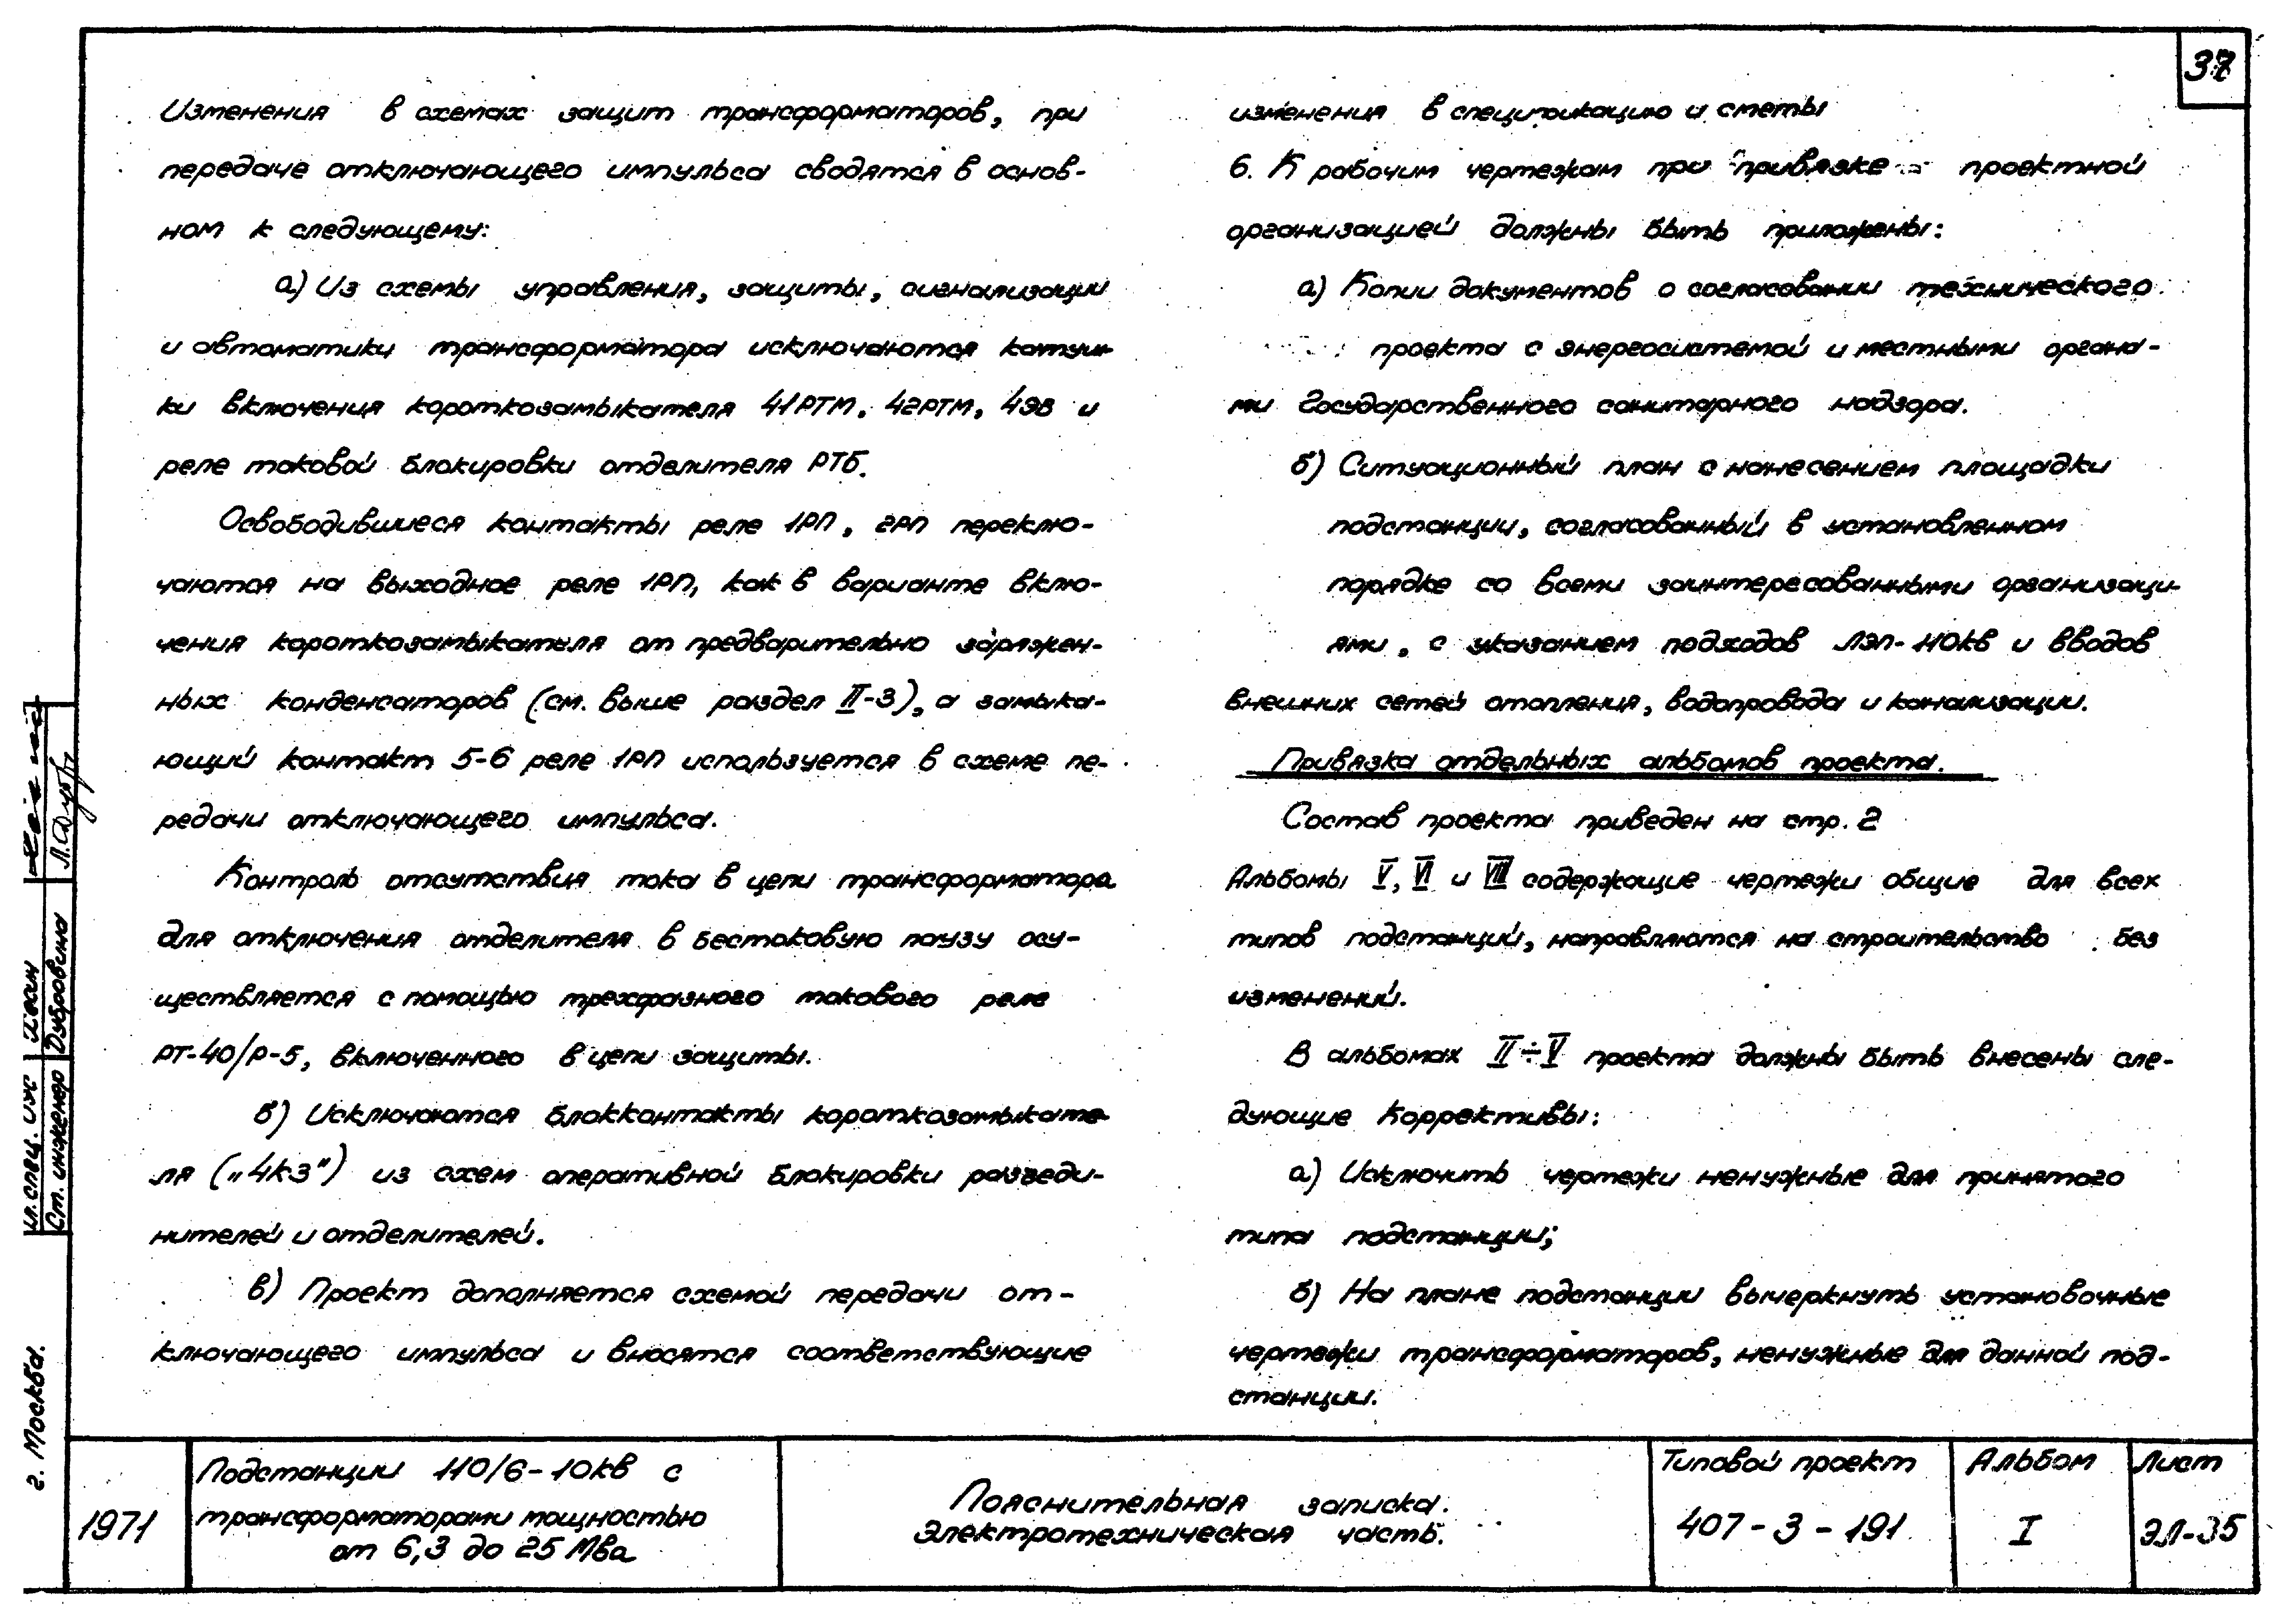 37
Изменения в схемах защит трансформаторов, при
передаче отключающего импульса сводятся в основ-
ном к следующему:
а) Из схемы управления, защиты, сигнализации
и автоматики трансформатора исключаются катуш-
ки включения короткозамыкателя 41РТМ, 42РТМ, 4ЭВ и
реле токовой блокировки отделителя РТБ.
Освободившиеся контакты реле 1РП, 2РП переклю-
чаются на выходное реле 1РП, как в варианте вклю-
чения короткозамыкателя от предварительно заряжен-
ных конденсаторов (см. выше раздел II-3), а замыка-
ющий контакт 5-6 реле 1РП используется в схеме пе-
редачи отключающего импульса.
Контроль отсутствия тока в цепи трансформатора
для отключения отделителя в бестоковую паузу осу-
ществляется с помощью трехфазного токового реле
РТ-40/Р-5, включенного в цепи защиты.
б) Исключаются блокконтакты короткозамыкате-
ля („4КЗ") из схем оперативной блокировки разъеди-
нителей и отделителей.
в) Проект дополняется схемой передачи от-
ключающего импульса и вносятся соответствующие
изменения в спецификацию и сметы
6. К рабочим чертежам при привязке проектной
организацией должны быть приложены:
а) Копии документов о согласовании технического
проекта с энергосистемой и местными органа-
ми Государственного санитарного надзора.
б) Ситуационный план с нанесением площадки
подстанции, согласованный в установленном
порядке со всеми заинтересованными организаци-
ями, с указанием подходов ЛЭП-110кВ и вводов
внешних сетей отопления, водопровода и канализации.
Привязка отдельных альбомов проекта.
Состав проекта приведен на стр. 2
Альбомы V, VI и VIII содержащие чертежи общие для всех
типов подстанций, направляются на строительство без
изменений.
В альбомах II÷V проекта должны быть внесены сле-
дующие коррективы:
а) Исключить чертежи ненужные для принятого
типа подстанции;
б) На плане подстанции вычеркнуть установочные
чертежи трансформаторов, ненужные для данной под-
станции.
гл. спец. ИЭС Хевин
Ст. инженер Дубровина Л.Дубр
г. Москва.
1971
Подстанции 110/6-10кВ с
трансформаторами мощностью
от 6,3 до 25 Мва
Пояснительная записка.
Электротехническая часть.
Типовой проект
407-3-191
Альбом
I
Лист
ЭЛ-35